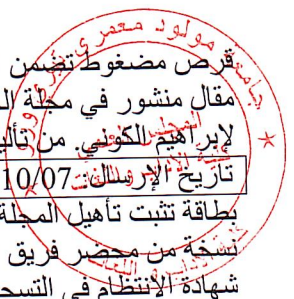 جامعة مولود معمري تيزي وزو
قرص مضغوط تضمن
مقال منشور في مجلة
لإبراهيم الكوني من
تاريخ الإرسال: 10/07
بطاقة تثبت تأهيل المجلة
نسخة من محضر فريق
شهادة الانتظام في